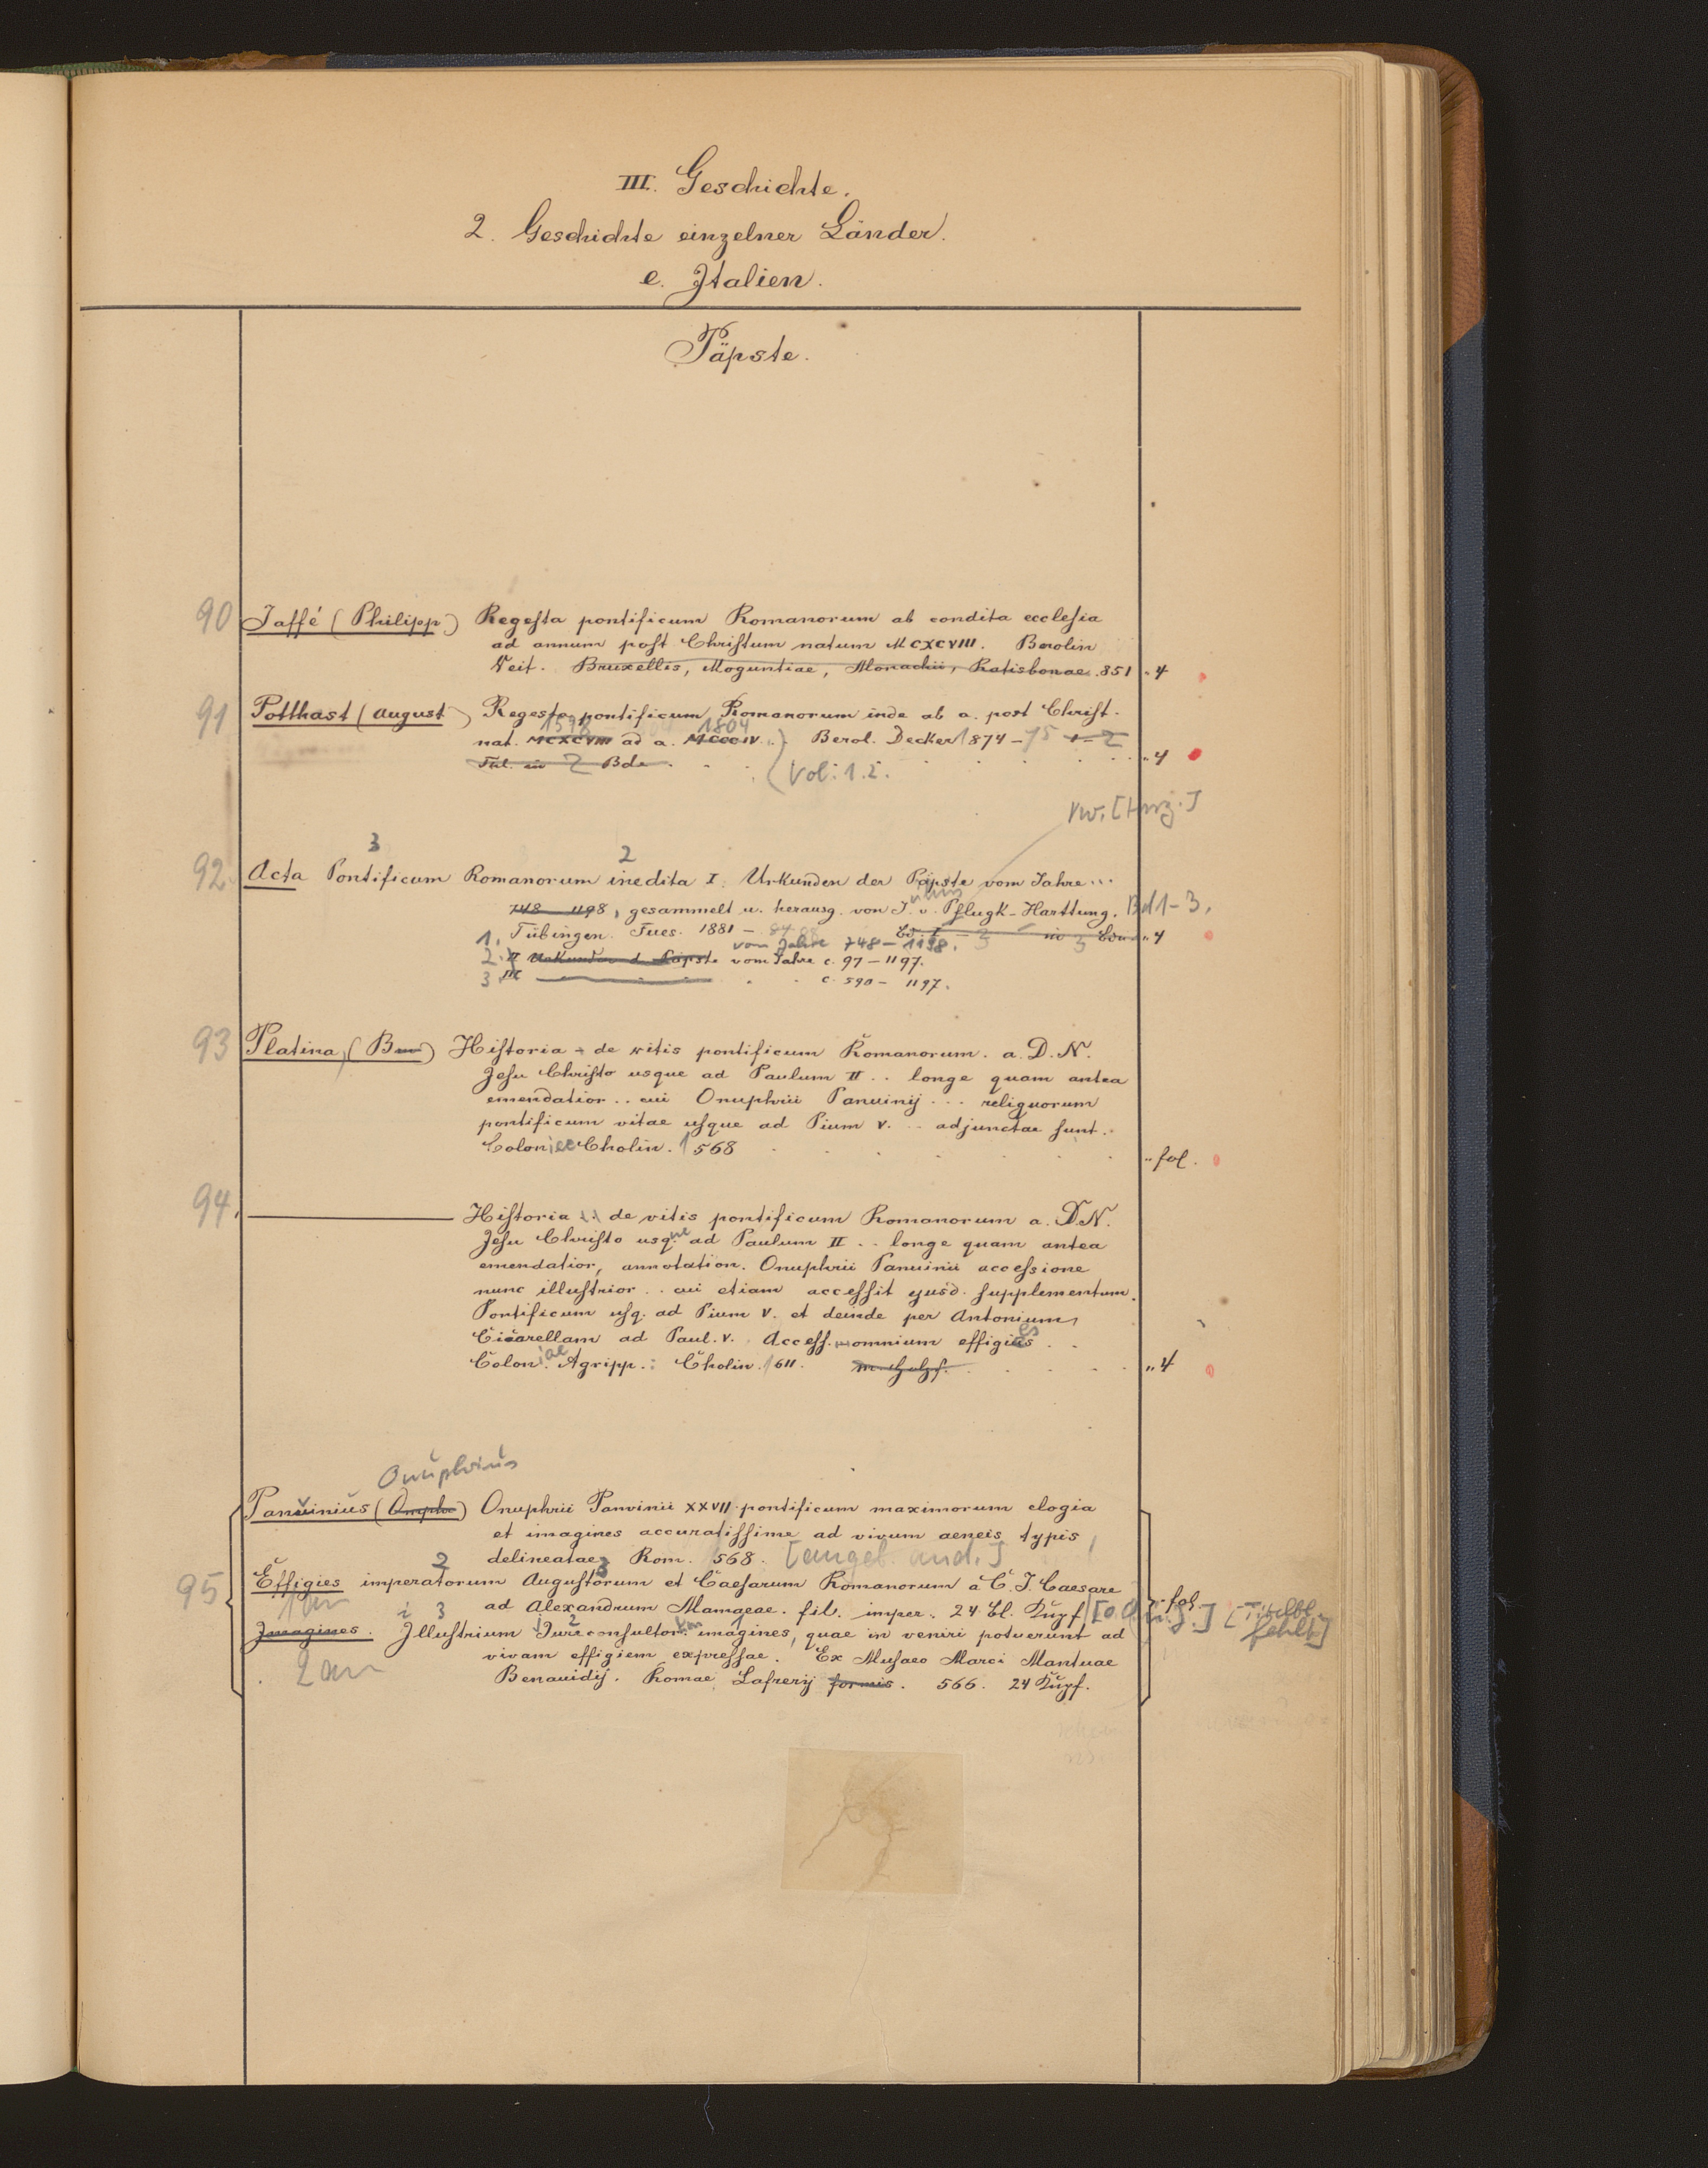 III. Geschichte.
2. Geschichte einzelner Länder.
e. Italien.
Päpste.
90 Jaffé (Philipp) Regesta pontificum Romanorum ab condita ecclesia
ad annum post Christum natum MCXCVIII. Berolin
Veit. Bruxellis, Moguntiae, Monachii, Ratisbonae. 851 " 4
91 Potthast (August) Regesta pontificum Romanorum inde ab a. post Christ.
1198 1304
nat. MCXCVIII ad a. MCCCIV. Berol. Decker 1874-75 1-2
in 2 Bde. (Vol: 1.2. " 4
vw. [Hrz.]
3 2
92. Acta Pontificum Romanorum inedita I: Urkunden der Päpste vom Jahre...
748-1198, gesammelt u. herausg. von J. v. Pflugk-Harttung. Bd 1-3.
1. Tübingen. Fues. 1881 - Bd. I - 3 in 3 Bdn " 4
vom Jahre 748-1198.
2. II Urkunden d. Päpste vom Jahre c. 97-1197.
3. III c. 590- 1197.
93 Platina, (B) Historia de vitis pontificum Romanorum. a. D. N.
Jesu Christo usque ad Paulum II .. longe quam antea
emendatior .. cui Onuphrii Panuinij ... reliquorum
pontificum vitae usque ad Pium V. .. adjunctae sunt.
Coloniae Cholin. 1568 " fol.
94. Historia .. de vitis pontificum Romanorum a. D.N.
Jesu Christo usq.ue ad Paulum II .. longe quam antea
emendatior, annotation. Onuphrii Panuinii accessione
nunc illustrior .. cui etiam accessit ejusd. supplementum.
Pontificum usq. ad Pium V. et deinde per Antonium
Cicarellam ad Paul. V. Access. omnium effigies ..
Colon.iae Agripp.: Cholin. 1611. m. Holzf. " 4
Onuphrius
Panvinius (Onuphr) Onuphrii Panvinii XXVII pontificum maximorum elogia
et imagines accuratissime ad vivum aeneis typis
delineatae Rom. 1568. [angeb. and.]
2 3
95 Effigies imperatorum Augustorum et Caesarum Romanorum a C. J. Caesare
1 an
ad Alexandrum Mamaeae. fil. imper. 24 Bl. Kupf [O.O. u. J.] " fol. [Titelbl. fehlt]
i 3 2
Imagines. Illustrium Jureconsultor.um imagines, quae in veniri potuerunt ad
2 an
vivam effigiem expressae. Ex Musaeo Marci Mantuae
Benauidij. Romae Lafrerij formis. 566. 24 Kupf.